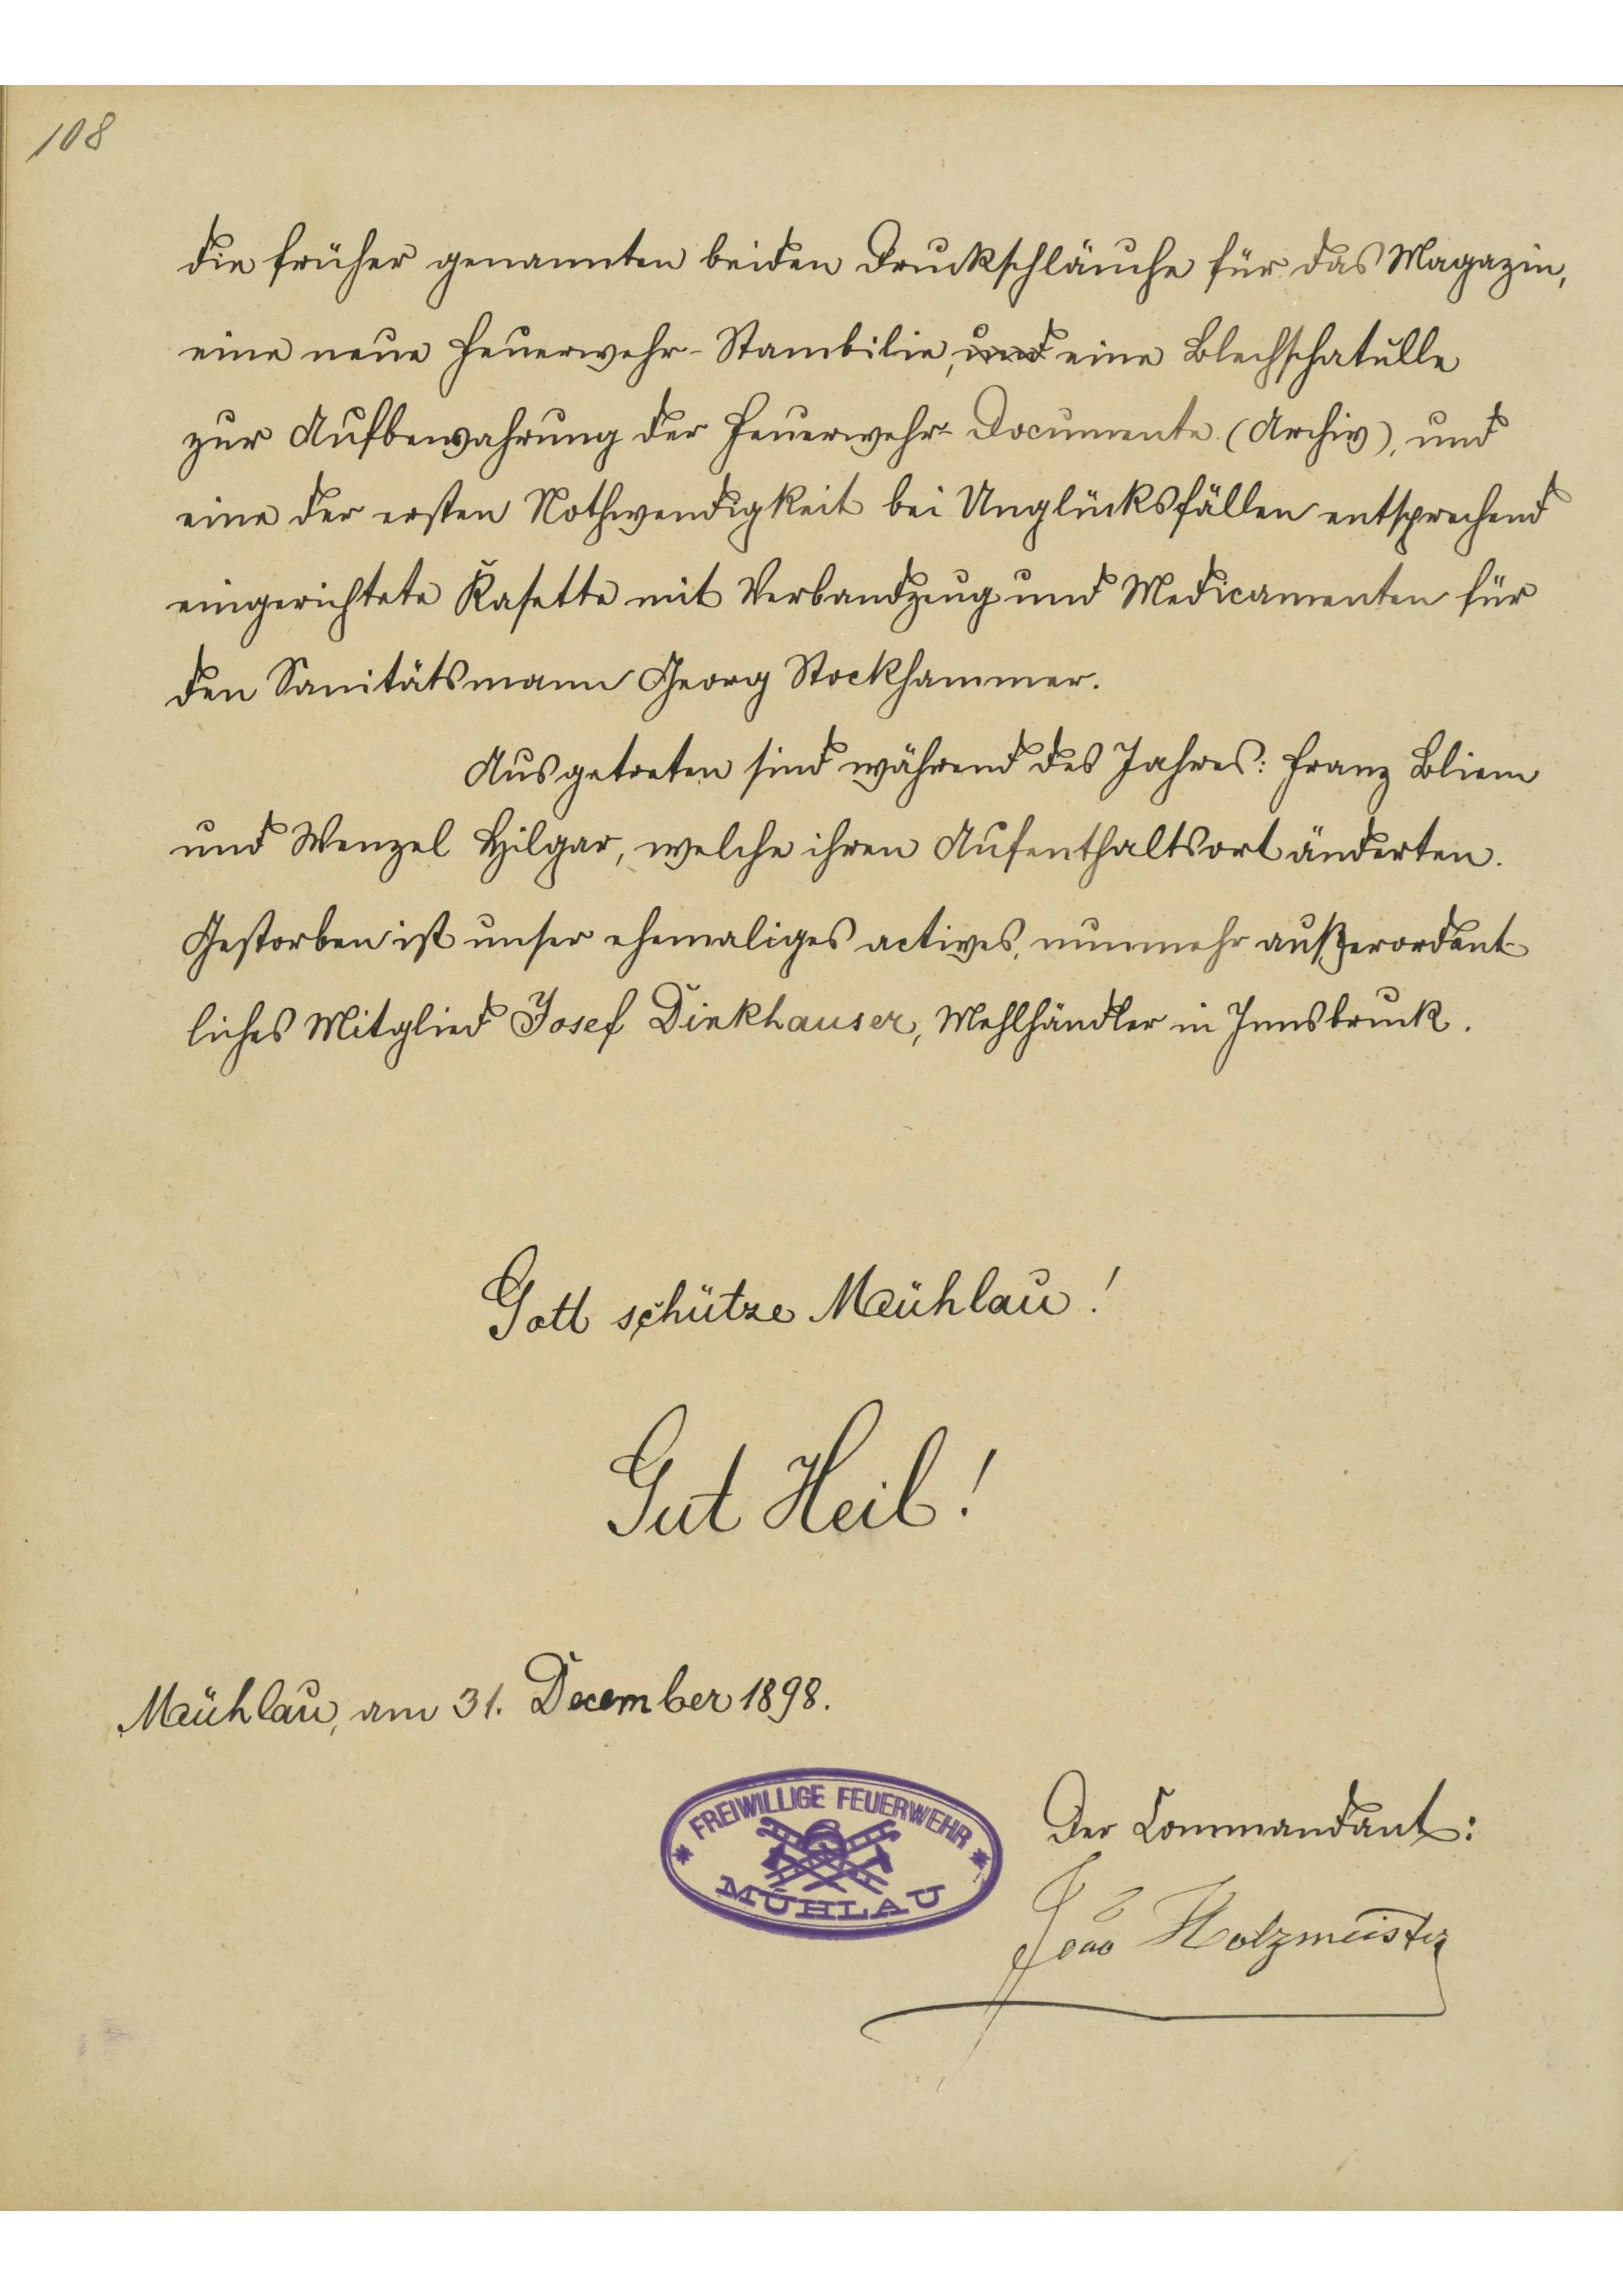 108
die früher genannten beiden Druckschläuche für das Magazin,
eine neue Feuerwehr-Stambilie, und eine Blechschatulle
zur Aufbewahrung der Feuerwehr-Documente (Archiv), und
eine der ersten Nothwendigkeit bei Unglücksfällen entsprechend
eingerichtete Kasette mit Verbandzeug und Medicamenten für
den Sanitätsmann Georg Stockhammer.
Ausgetreten sind während des Jahres: Franz Bliem
und Wenzel Hilgar, welche ihren Aufenthaltsort änderten.
Gestorben ist unser ehemaliges actives, nunmehr außerordent-
liches Mitglied Josef Dinkhauser, Mehlhändler in Innsbruck.
Gott schütze Mühlau!
Gut Heil!
Mühlau, am 31. December 1898.
FREIWILLIGE FEUERWEHR
MÜHLAU
Der Commandant:
Holzmeister